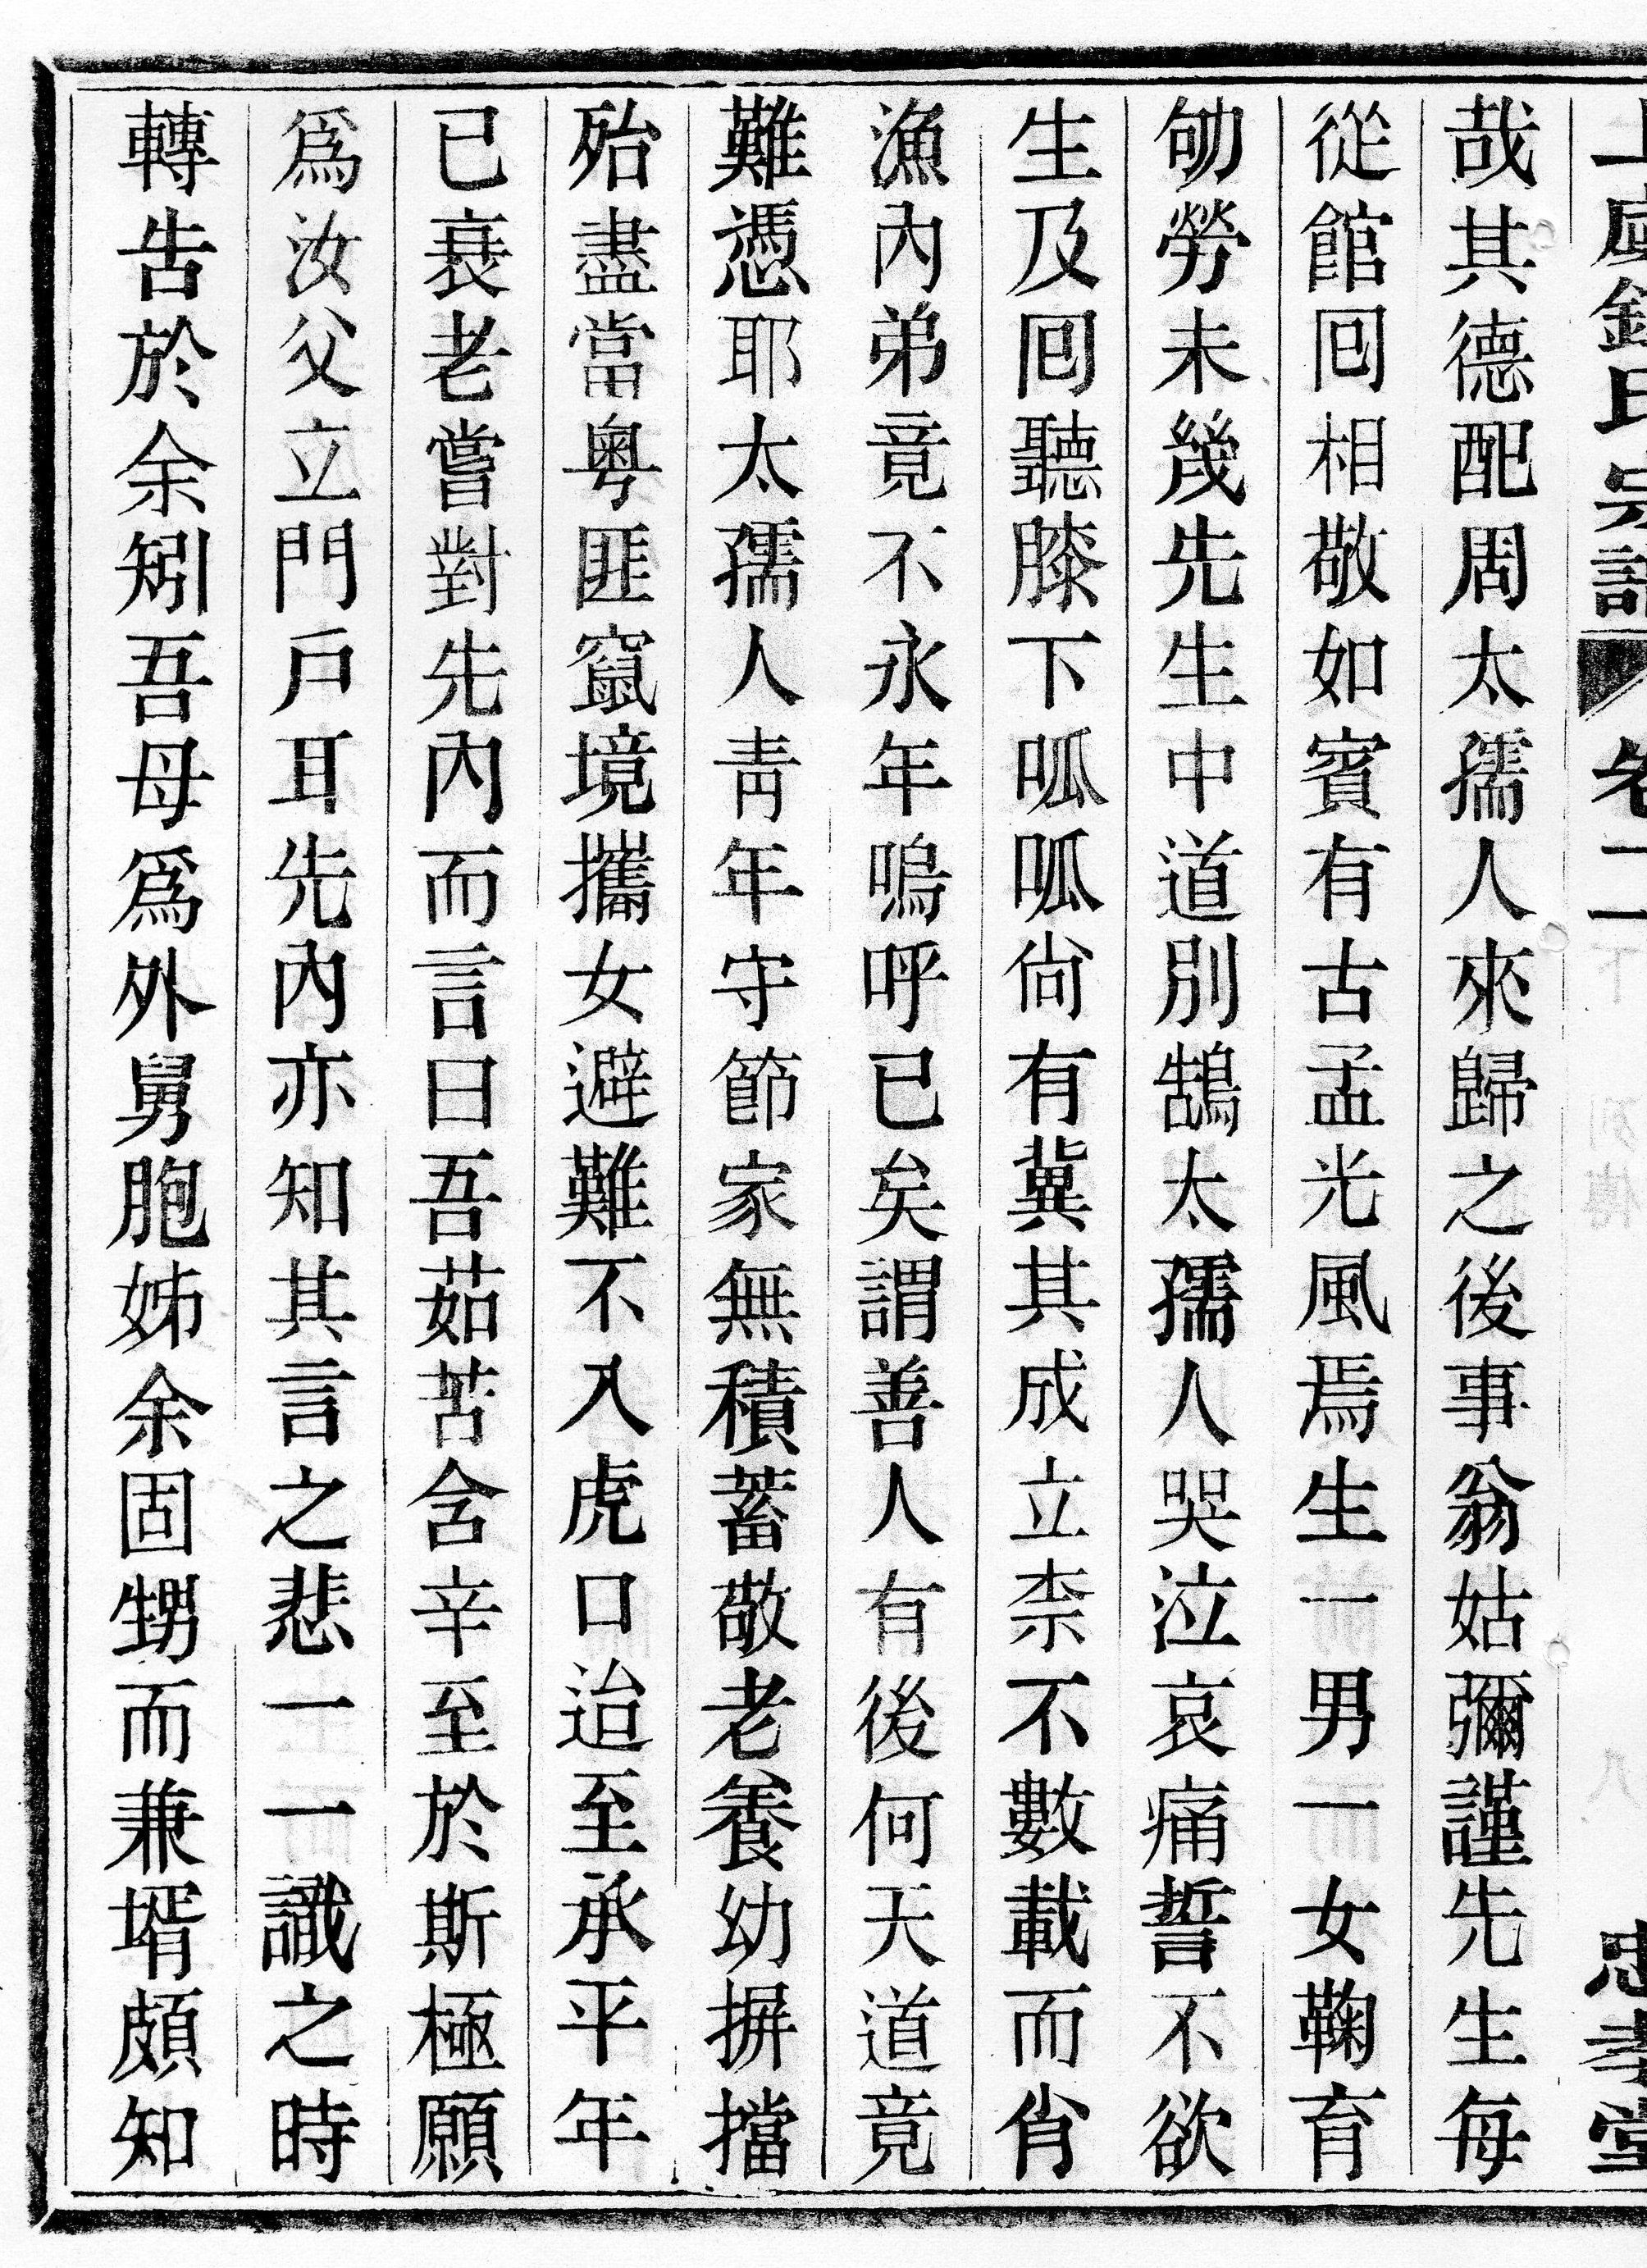 氏宗譜 卷二 忠孝堂
哉其德配周太孺人來歸之後事翁姑彌謹先生每
從館囘相敬如賓有古孟光風焉生一男一女鞠育
劬勞未幾先生中道別鵠太孺人哭泣哀痛誓不欲
生及囘聽膝下呱呱尙有冀其成立柰不數載而肖
漁內弟竟不永年嗚呼已矣謂善人有後何天道竟
難憑耶太孺人靑年守節家無積蓄敬老養幼摒擋
殆盡當粵匪竄境攜女避難不入虎口迨至承平年
已衰老嘗對先內而言曰吾茹苦含辛至於斯極願
爲汝父立門戶耳先內亦知其言之悲一一識之時
轉告於余矧吾母爲外舅胞姊余固甥而兼壻頗知